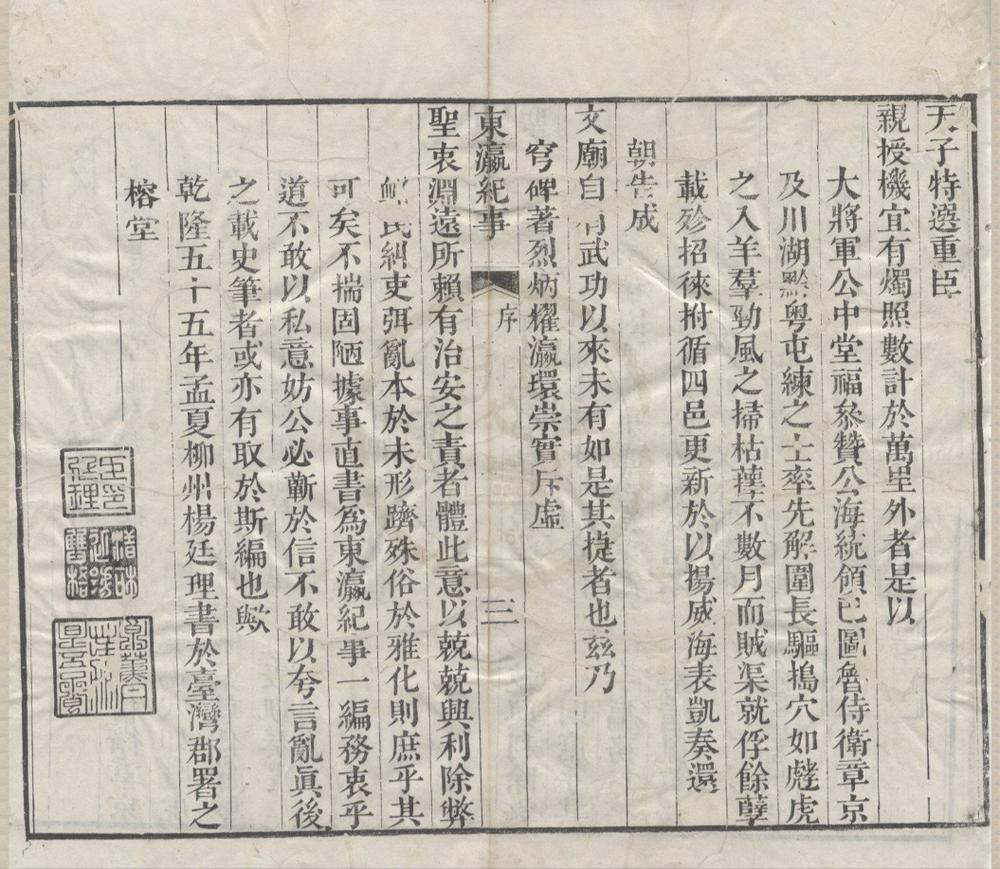 天子特選重臣
親授機宜有燭照數計於萬里外者是以
大將軍公中堂福叅贊公海統領巴圖魯侍衛章京
及川湖黔粵屯練之士率先解圍長驅搗穴如虓虎
之入羊羣勁風之掃枯蘀不數月而賊渠就俘餘孽
載殄招徠拊循四邑更新於以揚威海表凱奏還
朝告成
文廟自有武功以來未有如是其捷者也玆乃
穹碑著烈炳耀瀛環崇實斥虛
東瀛紀事 序 三
聖衷淵遠所賴有治安之責者體此意以兢兢興利除弊
民糾吏弭亂本於未形躋殊俗於雅化則庶乎其
可矣不揣固陋據事直書爲東瀛紀事一編務衷乎
道不敢以私意妨公必蘄於信不敢以夸言亂眞後
之載史筆者或亦有取於斯編也歟
乾隆五十五年孟夏柳州楊廷理書於臺灣郡署之
榕堂